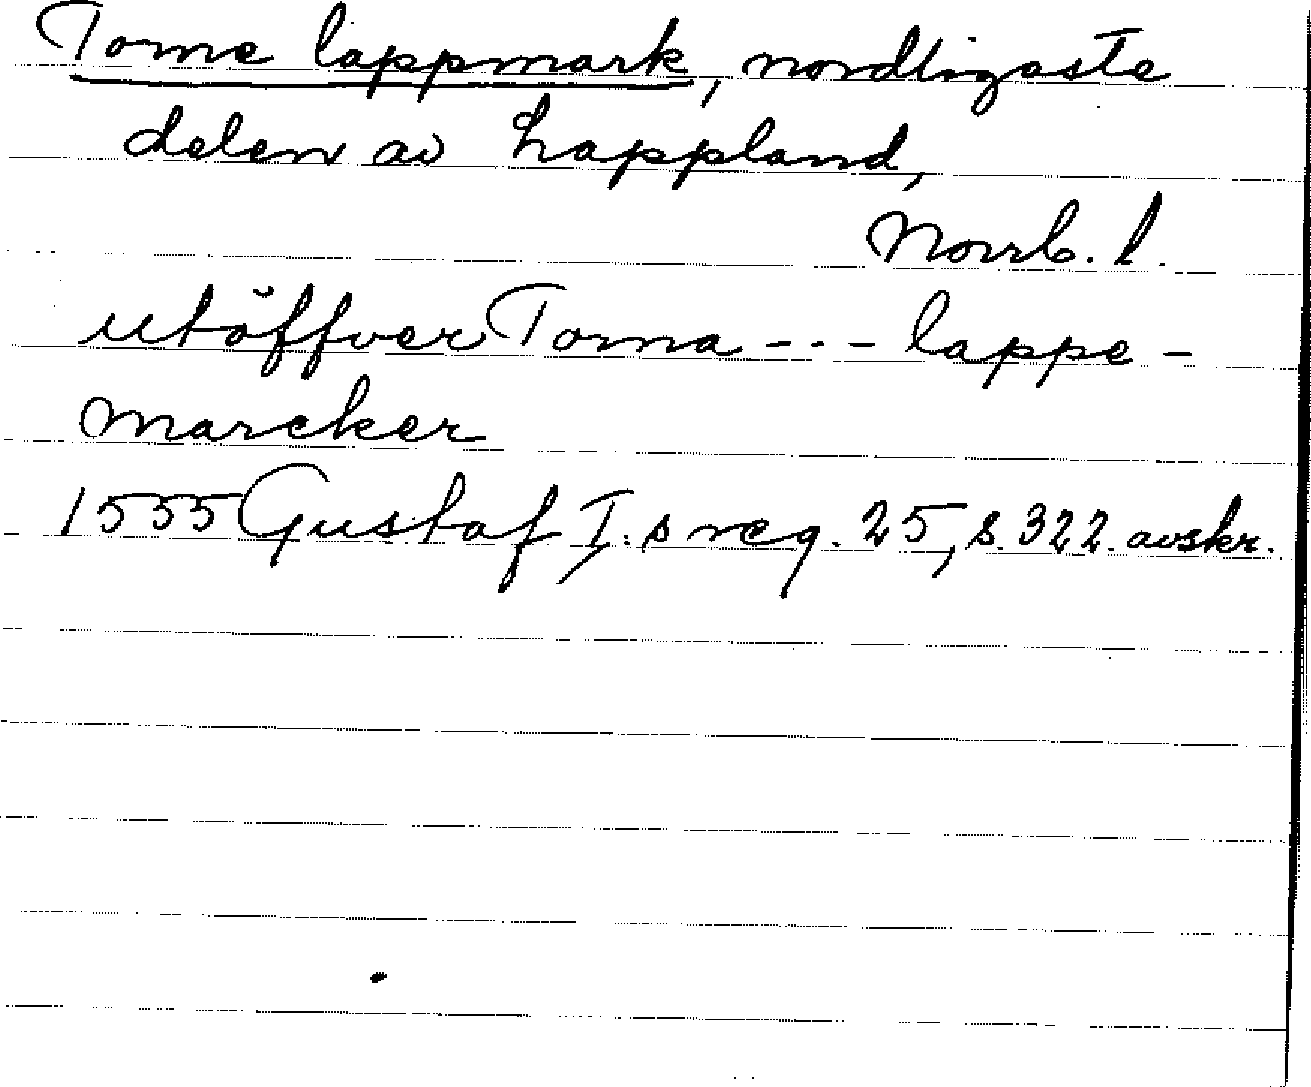 Torne lappmark, nordligaste
delen av Lappland,
Norrb. l.
utöffver Torna --- lappe-
marcker
1555 Gustaf I:s reg. 25, s. 322. avskr.